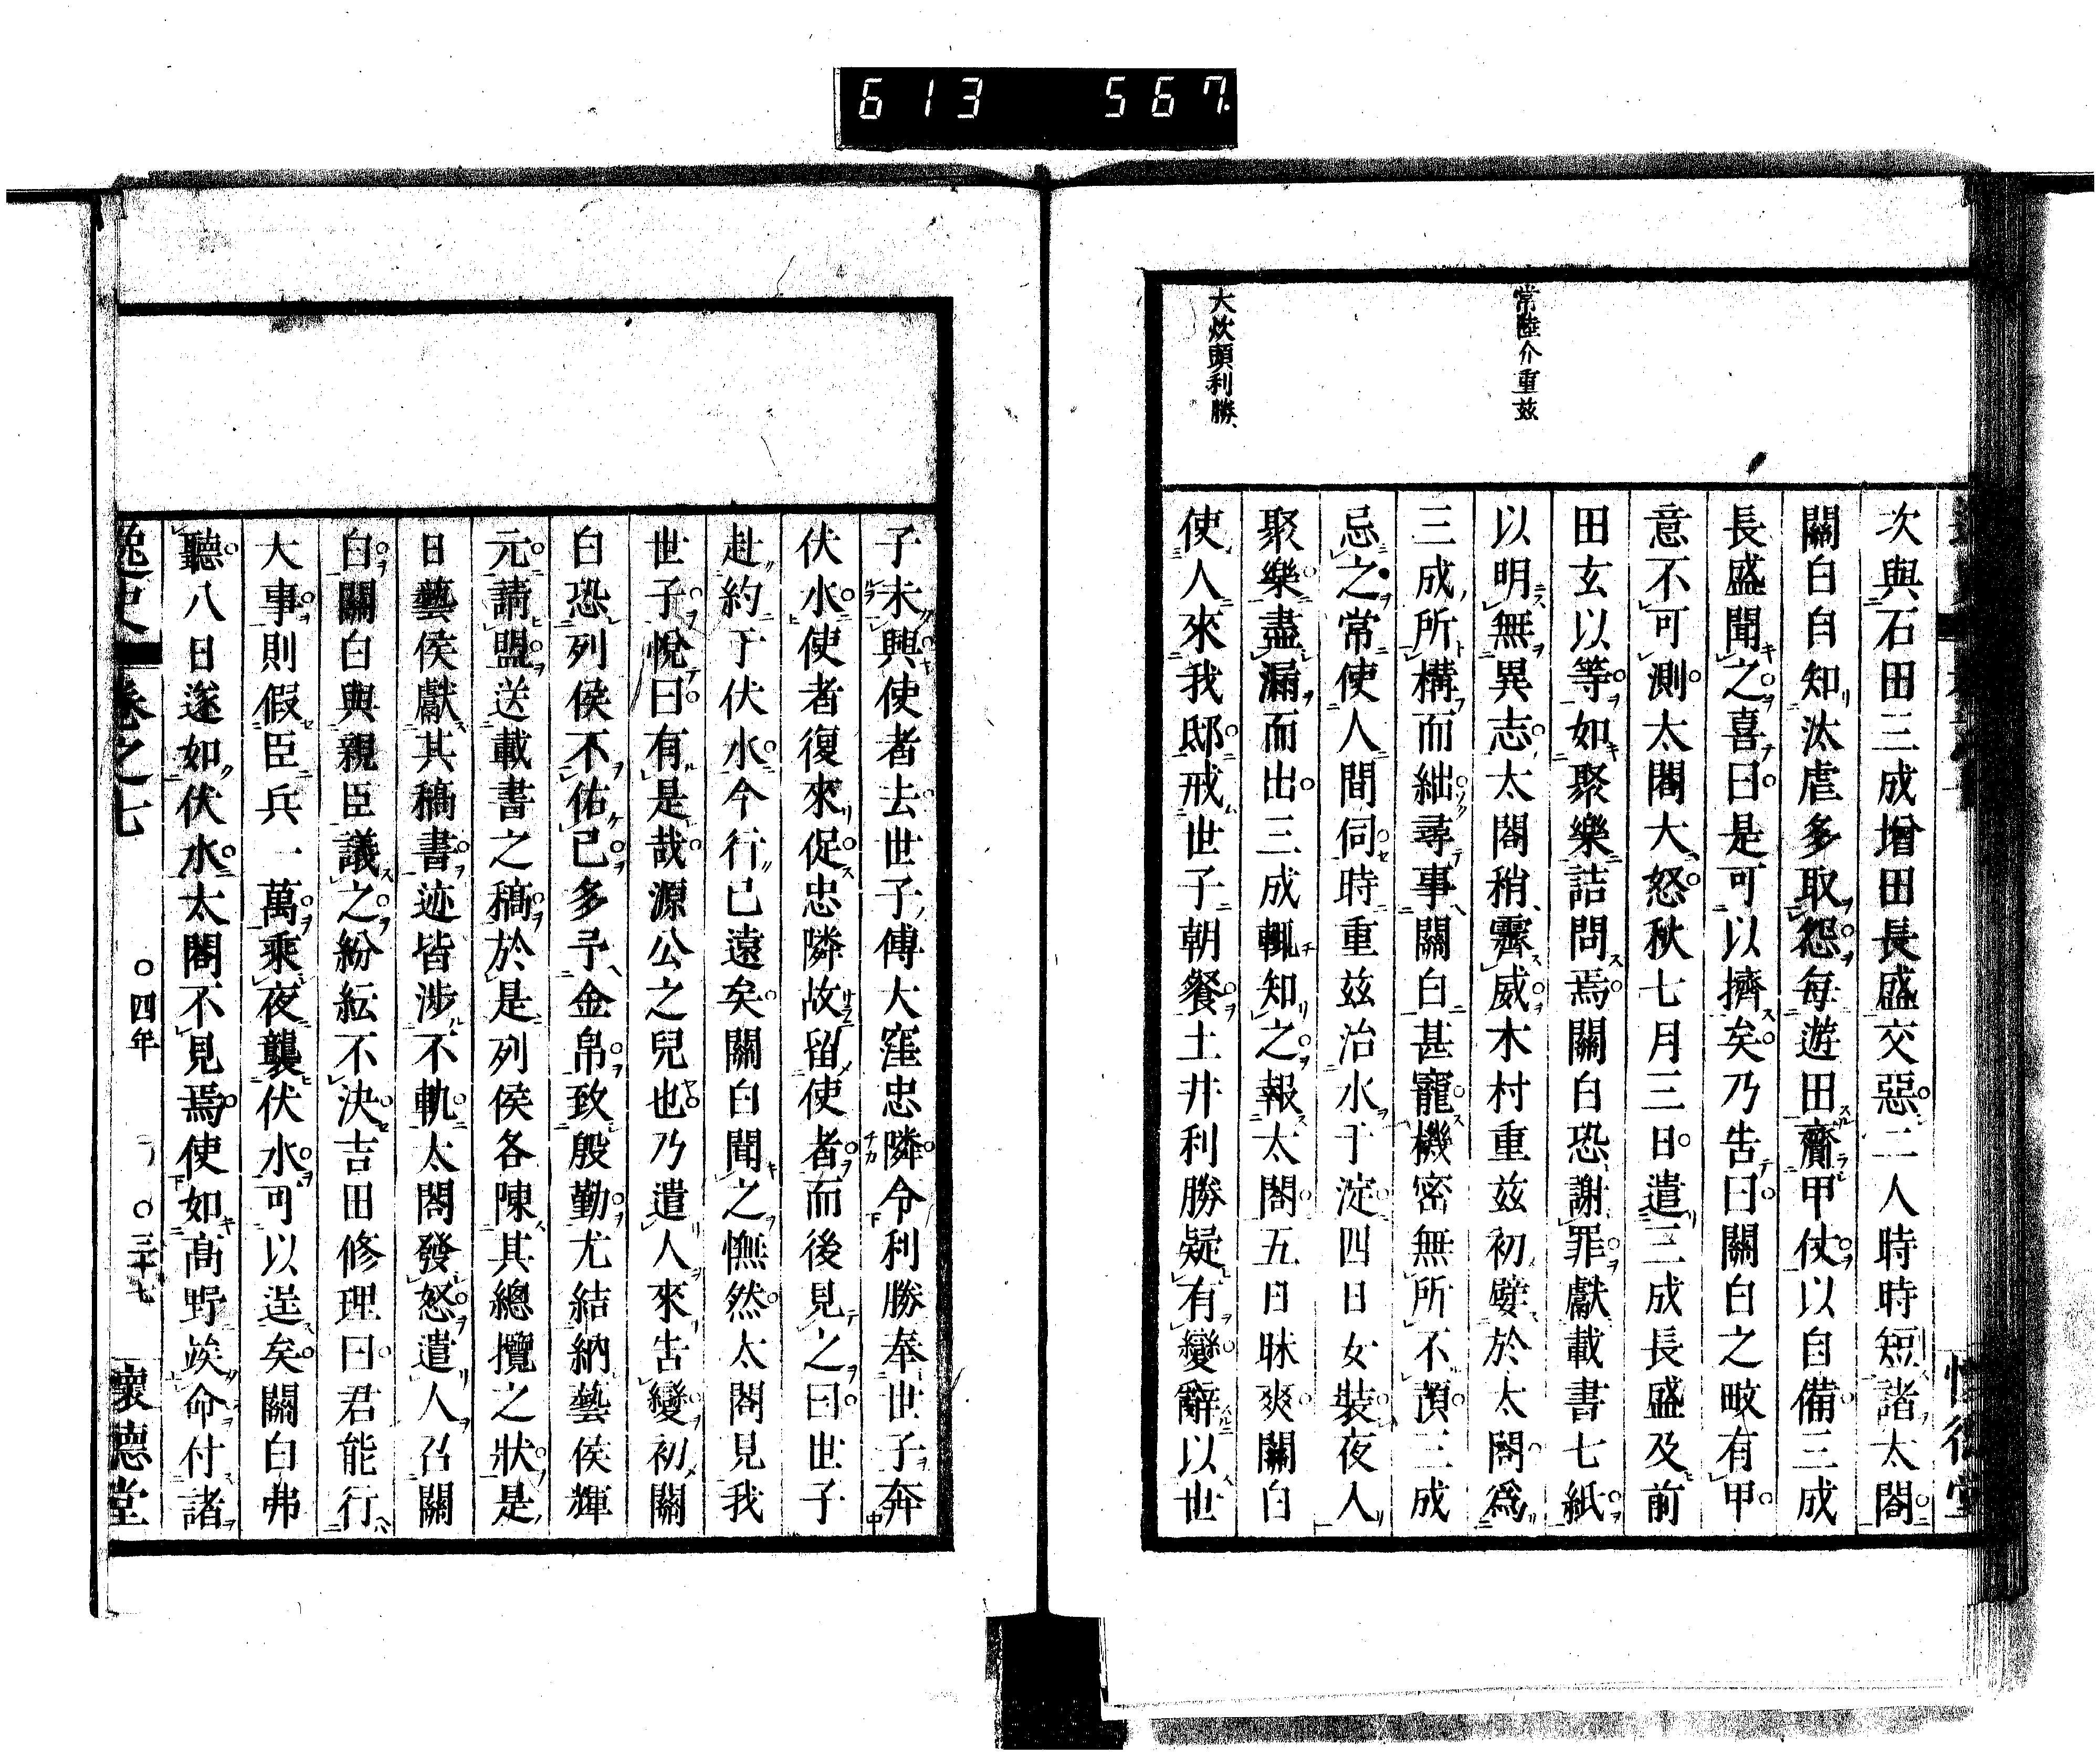 613 567
常陸介重玆
大炊頭利勝
次與石田三成增田長盛交惡二人時時短諸太閤
關白自知汰虐多取怨每遊田齎甲仗以自備三成
長盛聞之喜曰是可以擠矣乃告曰關白之畋有甲
意不可測太閤大怒秋七月三日遣三成長盛及前
田玄以等如聚樂詰問焉關白恐謝罪獻載書七紙
以明無異志太閤稍霽威木村重玆初嬖於太閤爲
三成所構而絀尋事關白甚寵機密無所不預三成
忌之常使人間伺時重玆治水于淀四日女裝夜入
聚樂盡漏而出三成輒知之報太閤五日昧爽關白
使人來我邸戒世子朝餐土井利勝疑有變辭以世
子未興使者去世子傅大窪忠隣令利勝奉世子奔
伏水使者復來促忠隣故留使者而後見之曰世子
赴約于伏水今行已遠矣關白聞之憮然太閤見我
世子悅曰有是哉源公之兒也乃遣人來告變初關
白恐列侯不佑已多予金帛致殷勤尤結納藝侯輝
元請盟送載書之稿於是列侯各陳其總攬之狀是
日藝侯獻其稿書迹皆涉不軌太閤發怒遣人召關
白關白與親臣議之紛紜不決吉田修理曰君能行
大事則假臣兵一萬乘夜襲伏水可以逞矣關白弗
聽八日遂如伏水太閤不見焉使如高野竢命付諸
逸史 卷之七 〇四年 〇三十七 懷德堂